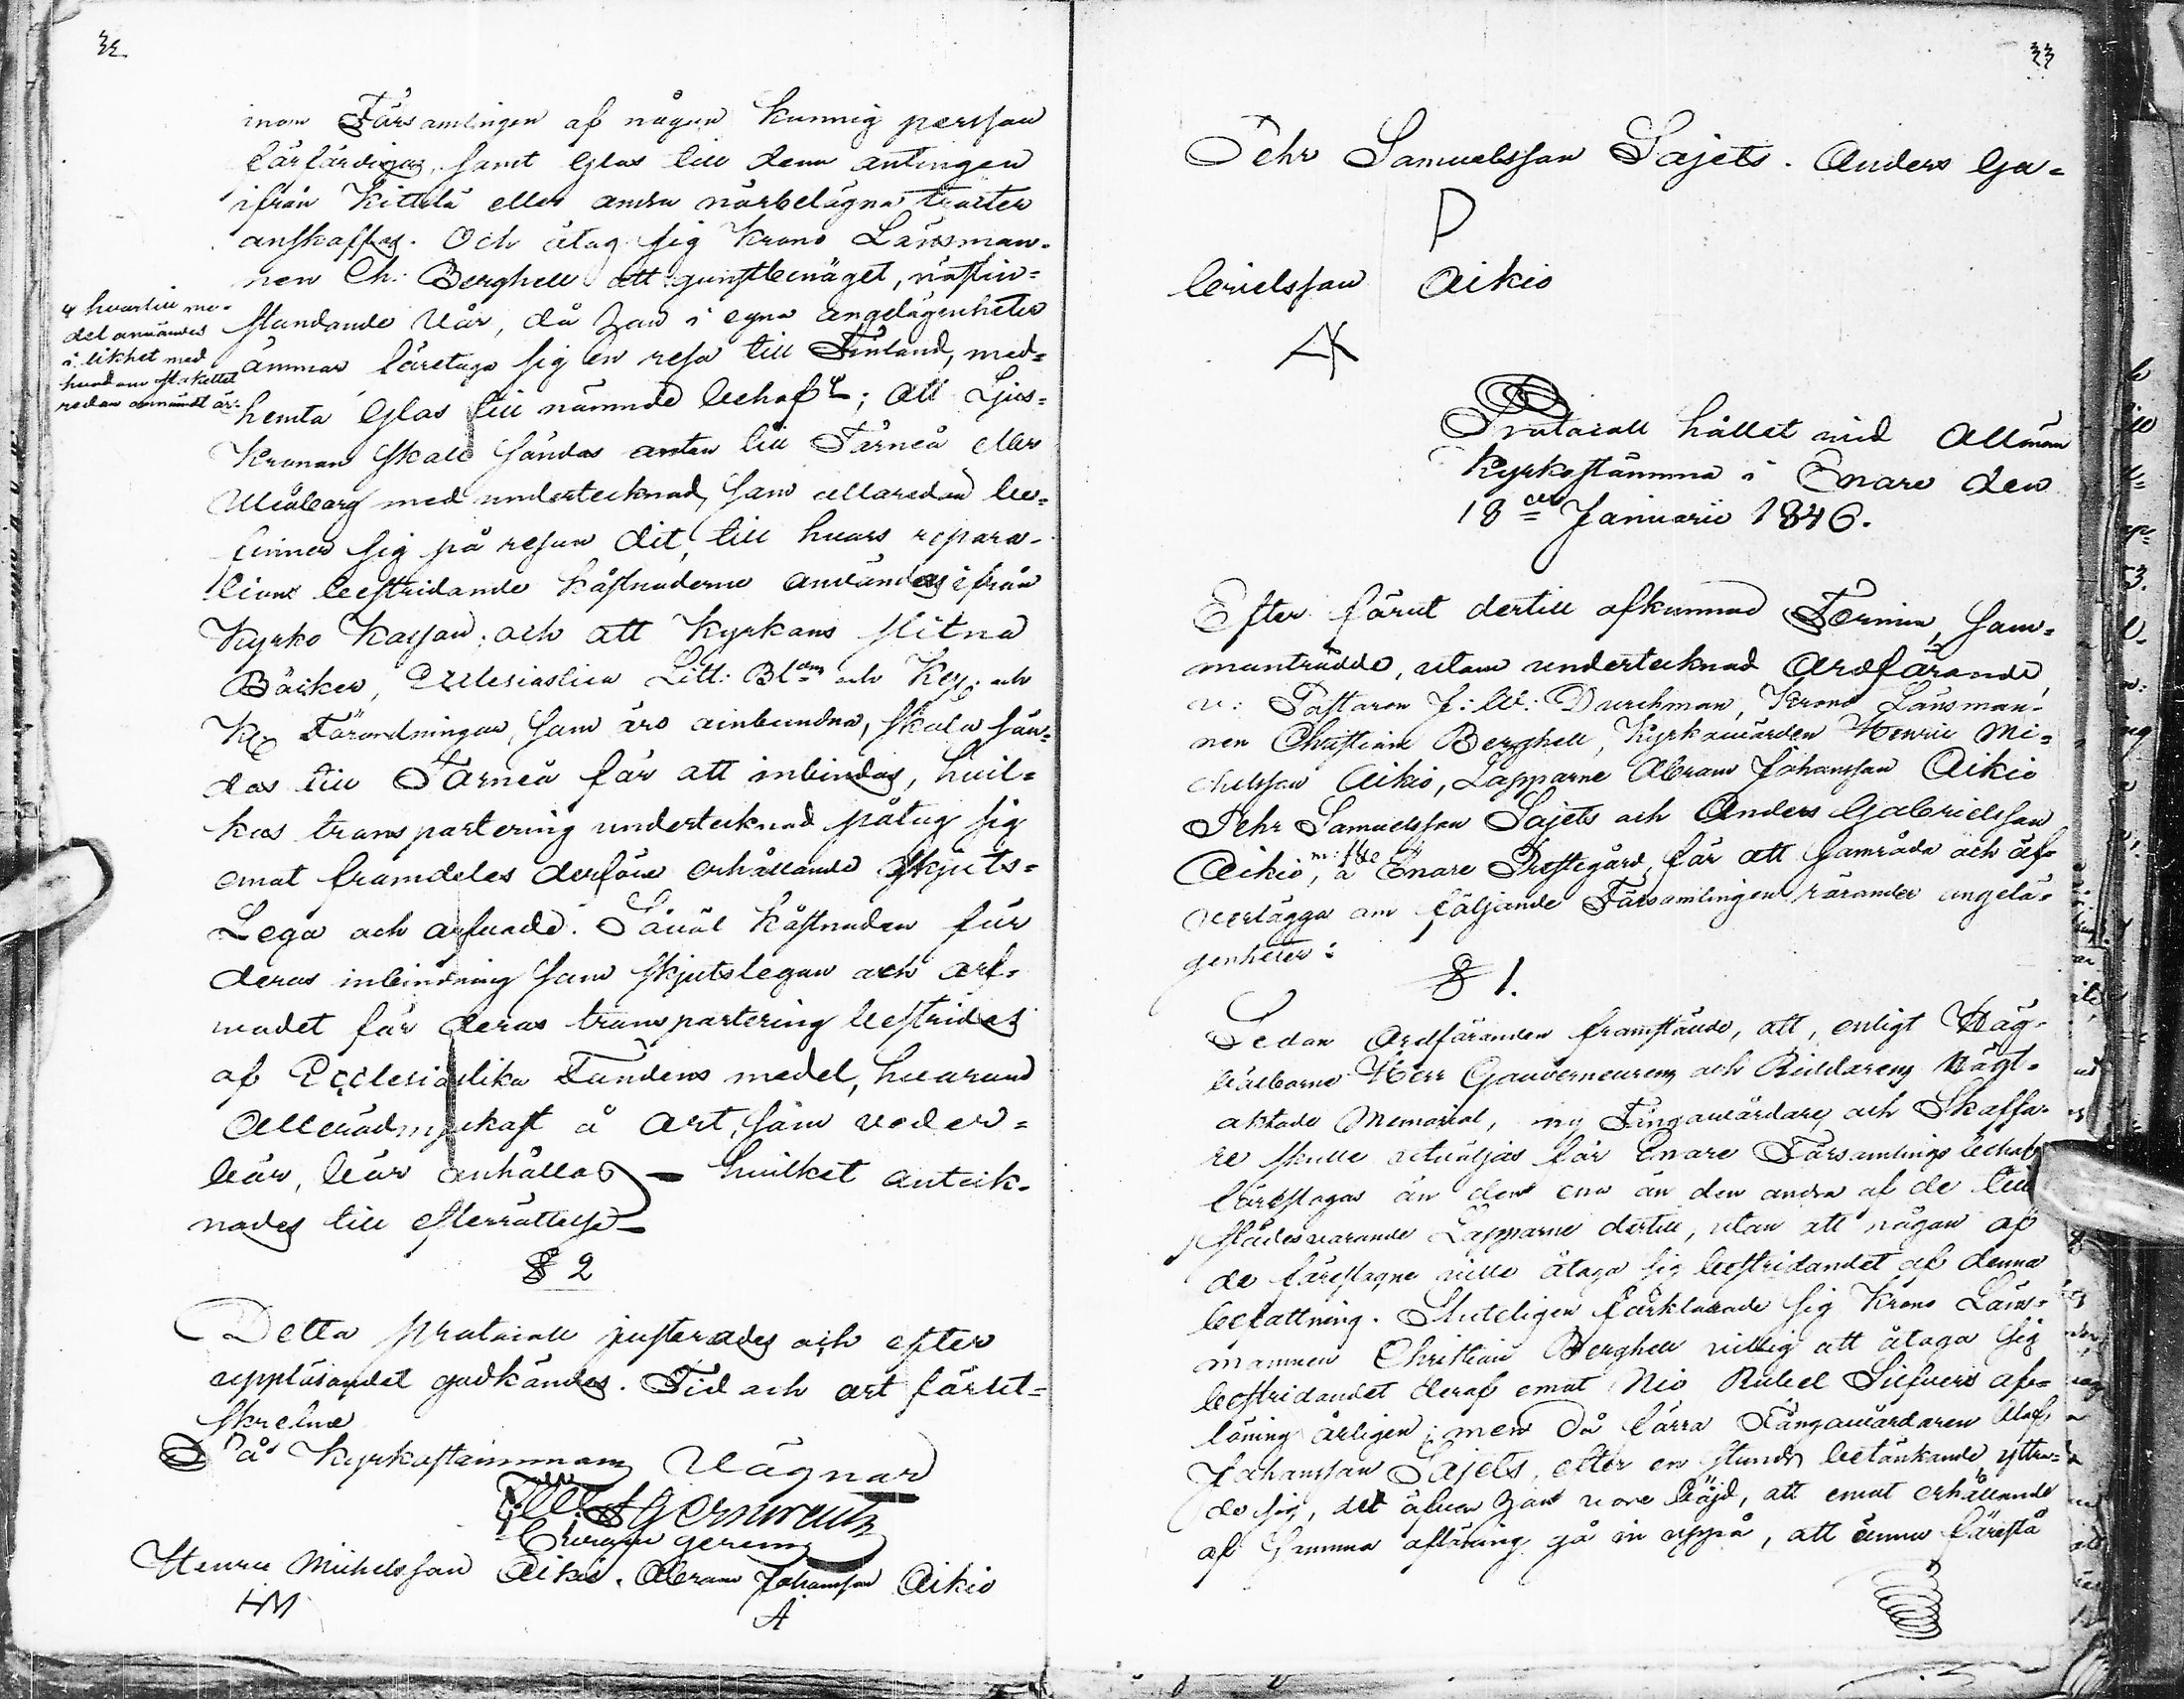 32.
inom Församlingen af någon kunnig person
förfärdigas, samt Glas till dem antingen
ifrån Kittilä eller andra närbelägna trakter
anskaffas. Och åtog sig Krono Länsman-
nen Ch: Berghell att gunstbenäget, nästin-
stundande Vår, då han i egna angelägenheter
ämnar företaga sig en resa till Finland, med-
hemta Glas till nämnde behof; att Ljus-
Kronan skall sändas antin till Torneå eller
Uleåborg med undertecknad, som allaredan be-
finner sig på resan dit, till hvars repara-
tions bestridande kostnaderne användas ifrån
Kyrko Kassan; och att Kyrkans slitna
Böcker, Ecclesiastica Litt: Bl och Kejs. och
Kg Förordningar, som äro oinbundna, skola sän-
das till Torneå för att inbindas, hvil-
kas transportering undertecknad påtog sig
emot framdeles derföre erhållande skjuts-
Lega och arfvode. Såväl kostnaden för
deras inbindning som skjutslegan och arf-
vodet för deras transportering bestrides
af Ecclesiastika Fondens medel, hvarom
Allerådmjukast å ort, som veder-
bör, bör anhållas – hvilket anteck-
nades till efterrättelse –
§ 2
Detta protocoll justerades och efter
uppläsandet godkändes. Tid och ort förut-
skrefne
På Kyrkostämmans Vägnar
Henric Michelsson Aikio. Abram Johansson Aikio
HM A
hvartill me-
del användes
i likhet med
hvad om stakettet
redan omnämdt är:
33
Pehr Samuelsson Sajets. Anders Ga-
P
brielsson Aikio
AK
Protocoll hållet vid Allmän
Kyrkostämma i Enare den
18 Januarii 1846.
Efter förut dertill afkunnad Termin, sam-
manträdde, utom undertecknad Ordförande,
v: Pastoren J: W: Durchman, Krono Länsman-
nen Christian Berghell, Kyrkovärden Henric Mi-
chelsson Aikio, Lapparne Abram Johansson Aikio
Pehr Samuelsson Sajets och Anders Gabrielsson
Aikio, m: fle å Enare Prestegård, för att samråda och öf-
verlägga om följande Församlingen rörande angelä-
genheter:
§ 1.
Sedan Ordföranden framstäldt, att, enligt Hög-
välborne Herr Gouverneurens och Riddarens Högt-
aktade Memorial, ny Fångavårdare och Skaffa-
re skulle utväljas för Enare Församlings behof,
föreslogos än den ena än den andra af de till
städesvarande Lapparne dertill, utan att någon af
de föreslagne ville åtaga sig bestridandet af denna
befattning. Sluteligen förklarade sig Krono Läns-
mannen Christian Berghell villig att åtaga sig
bestridandet deraf emot Nio Rubel Silfvers af-
löning årligen; men då förra Fångavårdaren Olof
Johansson Sajets, efter en stunds betänkande yttra-
de sig, det äfven han vore böjd, att emot erhållande
af samma aflöning gå in uppå, att ännu förestå